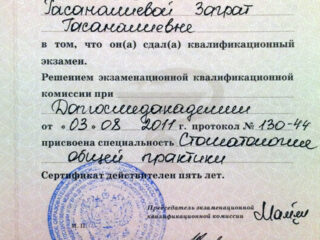 Гасаналиевой Заграт
Гасаналиевне
в том, что он(а) сдал(а) квалификационный
экзамен.
Решением экзаменационной квалификационной
комиссии при
Дагосмедакадемии
от «03» 08 2011 г. протокол № 130-44
присвоена специальность Стоматология
общей практики
Сертификат действителен пять лет.
Председатель экзаменационной
квалификационной комиссии
М.П.